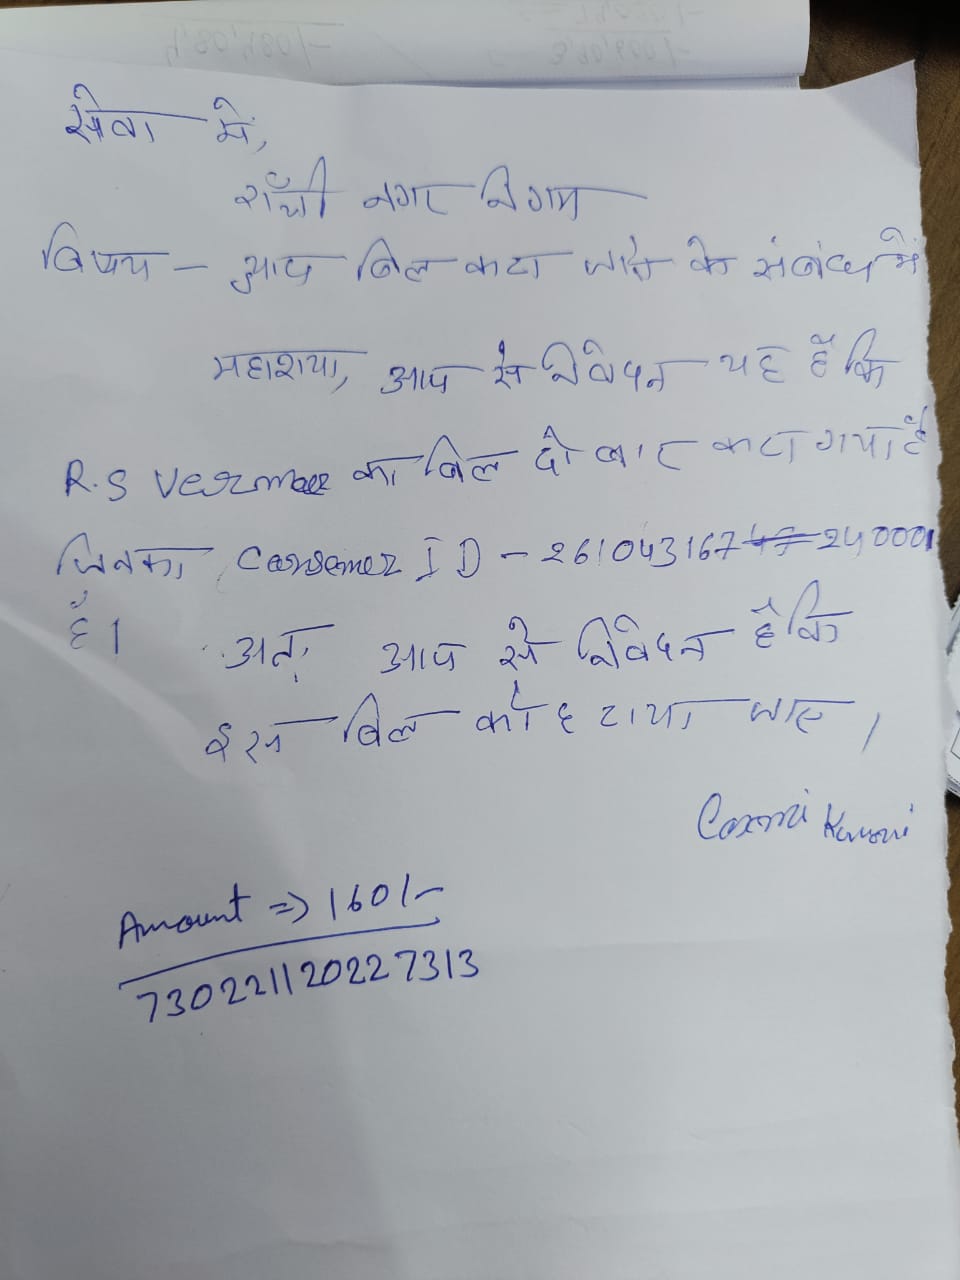 सेवा में,
राँची नगर निगम
विषय - आप बिल कटा जाने के संबंध में
महाशया, आप से निवेदन यह है कि
R.S Verma का बिल दो बार कटा गया है
जिनका Consemer ID - 261043167 240001
है। अतः आप से निवेदन है कि
इस बिल को हटाया जाए।
Laxmi Kumari
Amount => 1601/-
730221120227313